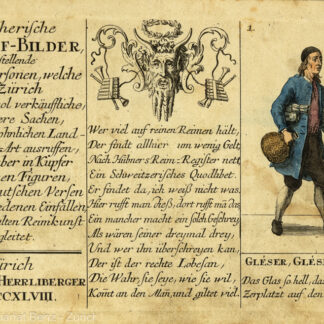 herische
F-BILDER,
stellende
ersonen, welche
Zürich
ol verkäuffliche,
ere Sachen,
öhnlichen Land-
Art ausruffen,
ber in Kupfer
nen Figuren,
utschen Versen
edenen Einfällen
lten Reimkunst
gleitet.
ürich
HERRLIBERGER
CCXLVIII.
Wer viel auf reinen Reimen hält,
Der findt allhier um wenig Gelt,
Nach Hübners Reim-Register nett
Ein Schweitzerisches Quodlibet.
Er findet da, ich weiß nicht was.
Hier rufft man dieß, dort rufft mã das,
Ein mancher macht ein solch beschrey,
Als wären seiner dreymal drey,
Und wer ihn überschreyen kan,
Der ist der rechte Lobesan,
Die Wahr, sie seye, wie sie wil,
Komt an den Mañ, und giltet viel.
1.
GLESER, GLÈSE
Das Glas so hell, das
Zerplatzt auf den